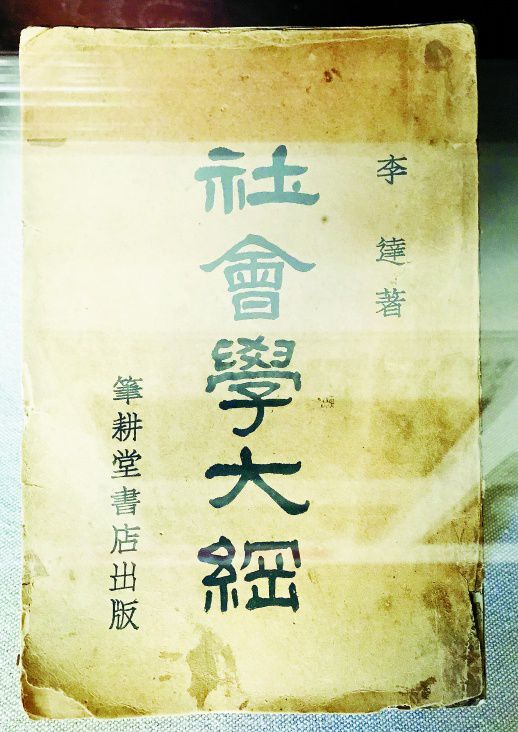 李達著
社會學大綱
筆耕堂書店出版